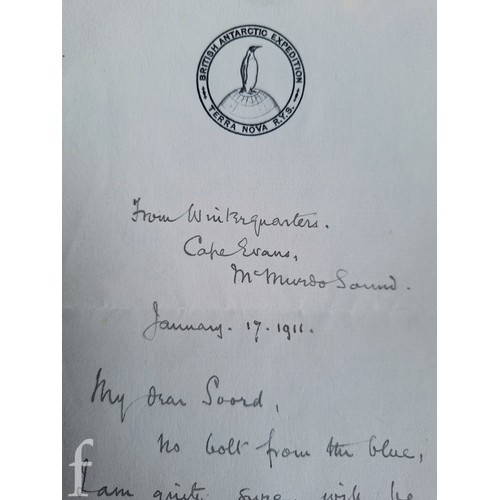 BRITISH ANTARCTIC EXPEDITION
TERRA NOVA R.Y.S.
From Winterquarters.
Cape Evans,
McMurdo Sound.
January. 17. 1911.
My dear Soord,
No bolt from the blue,
I am quite sure, will be
f